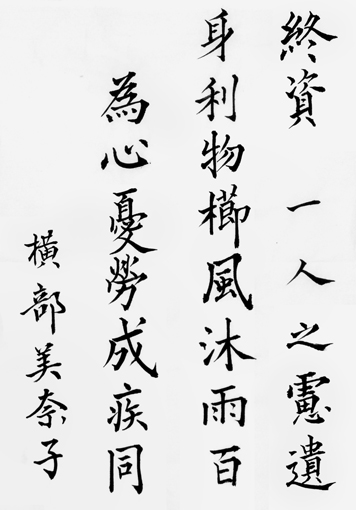 終資 一人之慮遺
身利物櫛風沐雨百
為心憂勞成疾同
横部美奈子